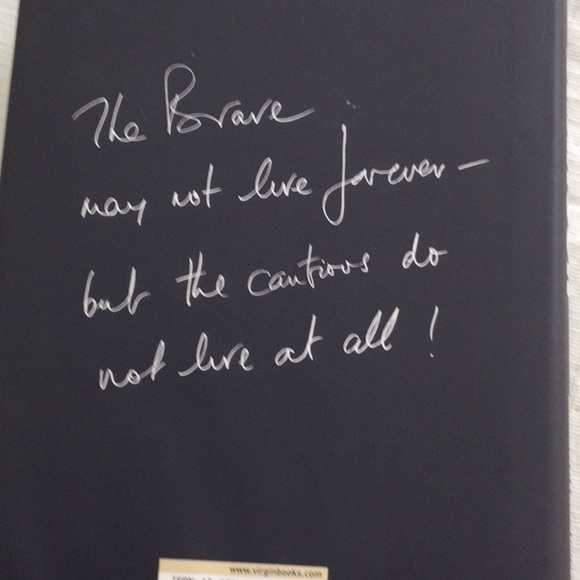 The Brave
may not live forever –
but the cautious do
not live at all !
www.virginbooks.com